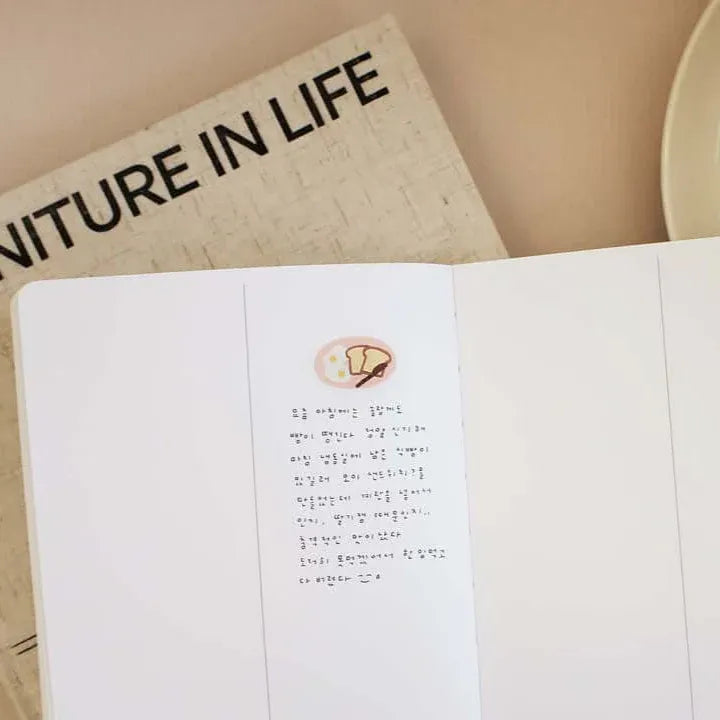 NITURE IN LIFE
요즘 아침에는 놀랍게도
빵이 땡긴다 정말 신기해
마침 냉동실에 남은 식빵이
있길래 오이 샌드위치를
만들었는데 계란을 넣어서
인지, 딸기잼 때문인지..
충격적인 맛이 났다
도저히 못먹겠어서 한입먹고
다 버렸다